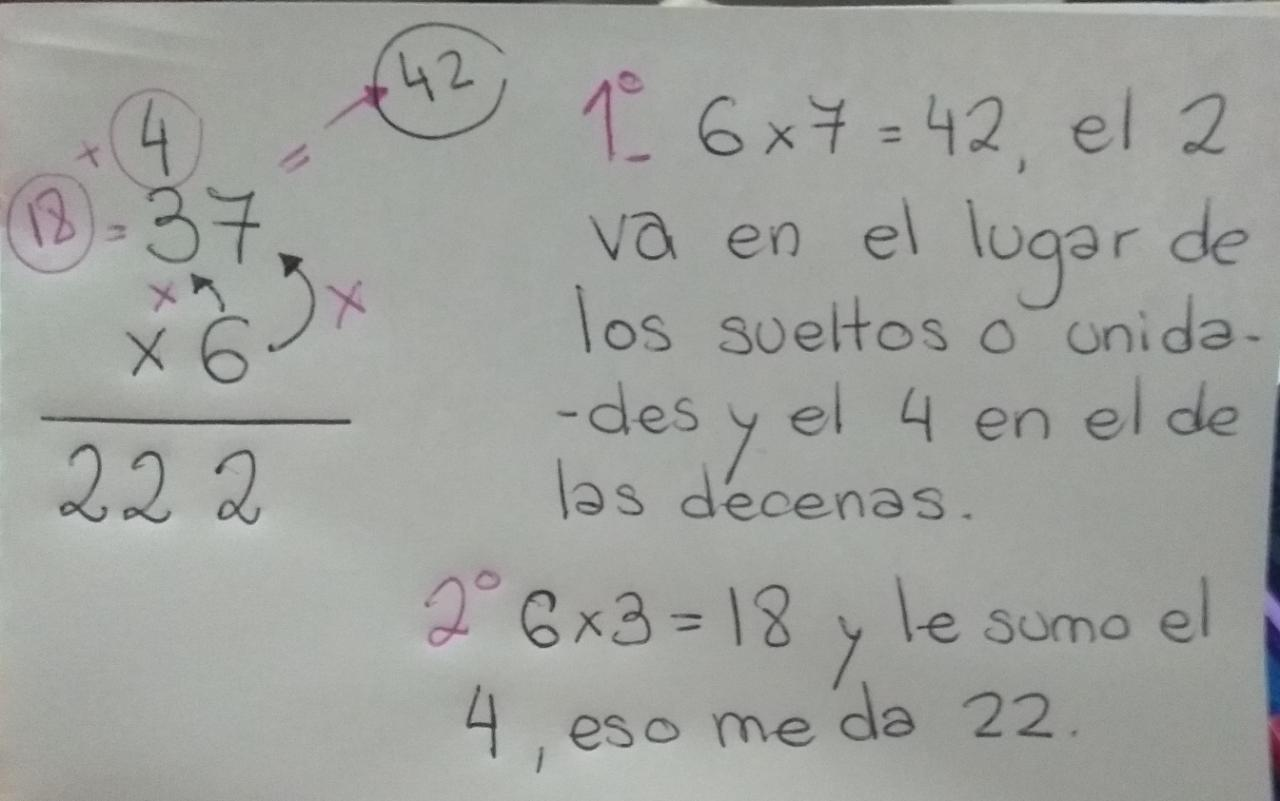 42
+ 4 =
18 = 37
x x
x 6
222
1º 6x7=42, el 2
va en el lugar de
los sueltos o unida-
-des y el 4 en el de
las decenas.
2º 6x3=18 y le sumo el
4, eso me da 22.